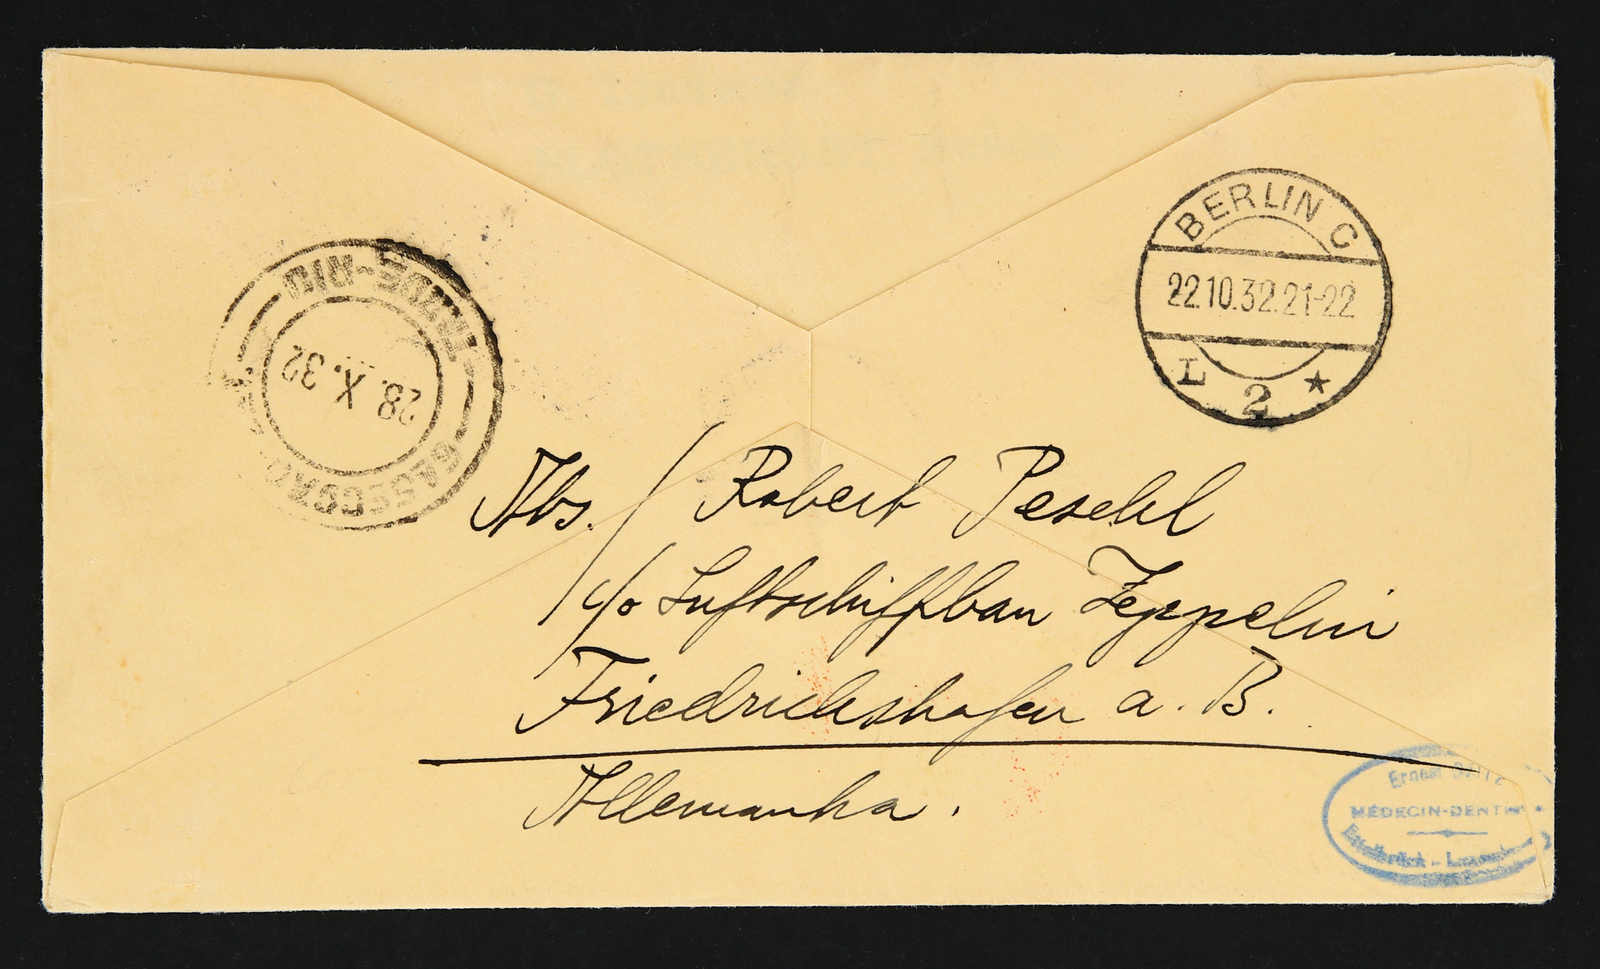 BERLIN C
22.10.32.21-22
L 2 *
28.X.32
Abs. / Robert Peschl
c/o Luftschiffbau Zeppelin
Friedrichshafen a. B.
Allemanha.
Ernest
MÉDECIN-DENTI